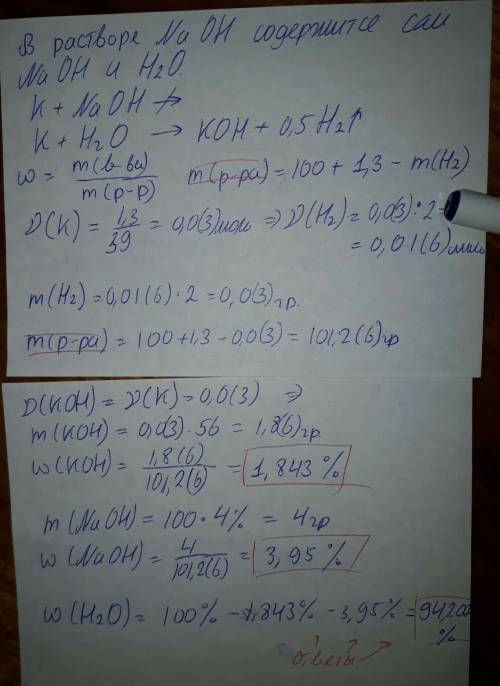 В растворе NaOH содержится сам
NaOH и H2O.
K + NaOH ↛
K + H2O → KOH + 0,5 H2↑
ω = m(в-ва) / m(р-р)
m(р-ра) = 100 + 1,3 - m(H2)
ν(K) = 1,3 / 39 = 0,0(3) моль ⇒ ν(H2) = 0,0(3) : 2 =
= 0,01(6) моль
m(H2) = 0,01(6) · 2 = 0,0(3) гр.
m(р-ра) = 100 + 1,3 - 0,0(3) = 101,2(6) гр
ν(KOH) = ν(K) = 0,0(3) ⇒
m(KOH) = 0,0(3) · 56 = 1,8(6) гр
ω(KOH) = 1,8(6) / 101,2(6) = 1,843 %
m(NaOH) = 100 · 4% = 4 гр
ω(NaOH) = 4 / 101,2(6) = 3,95 %
ω(H2O) = 100% - 1,843% - 3,95% =
%
ответы